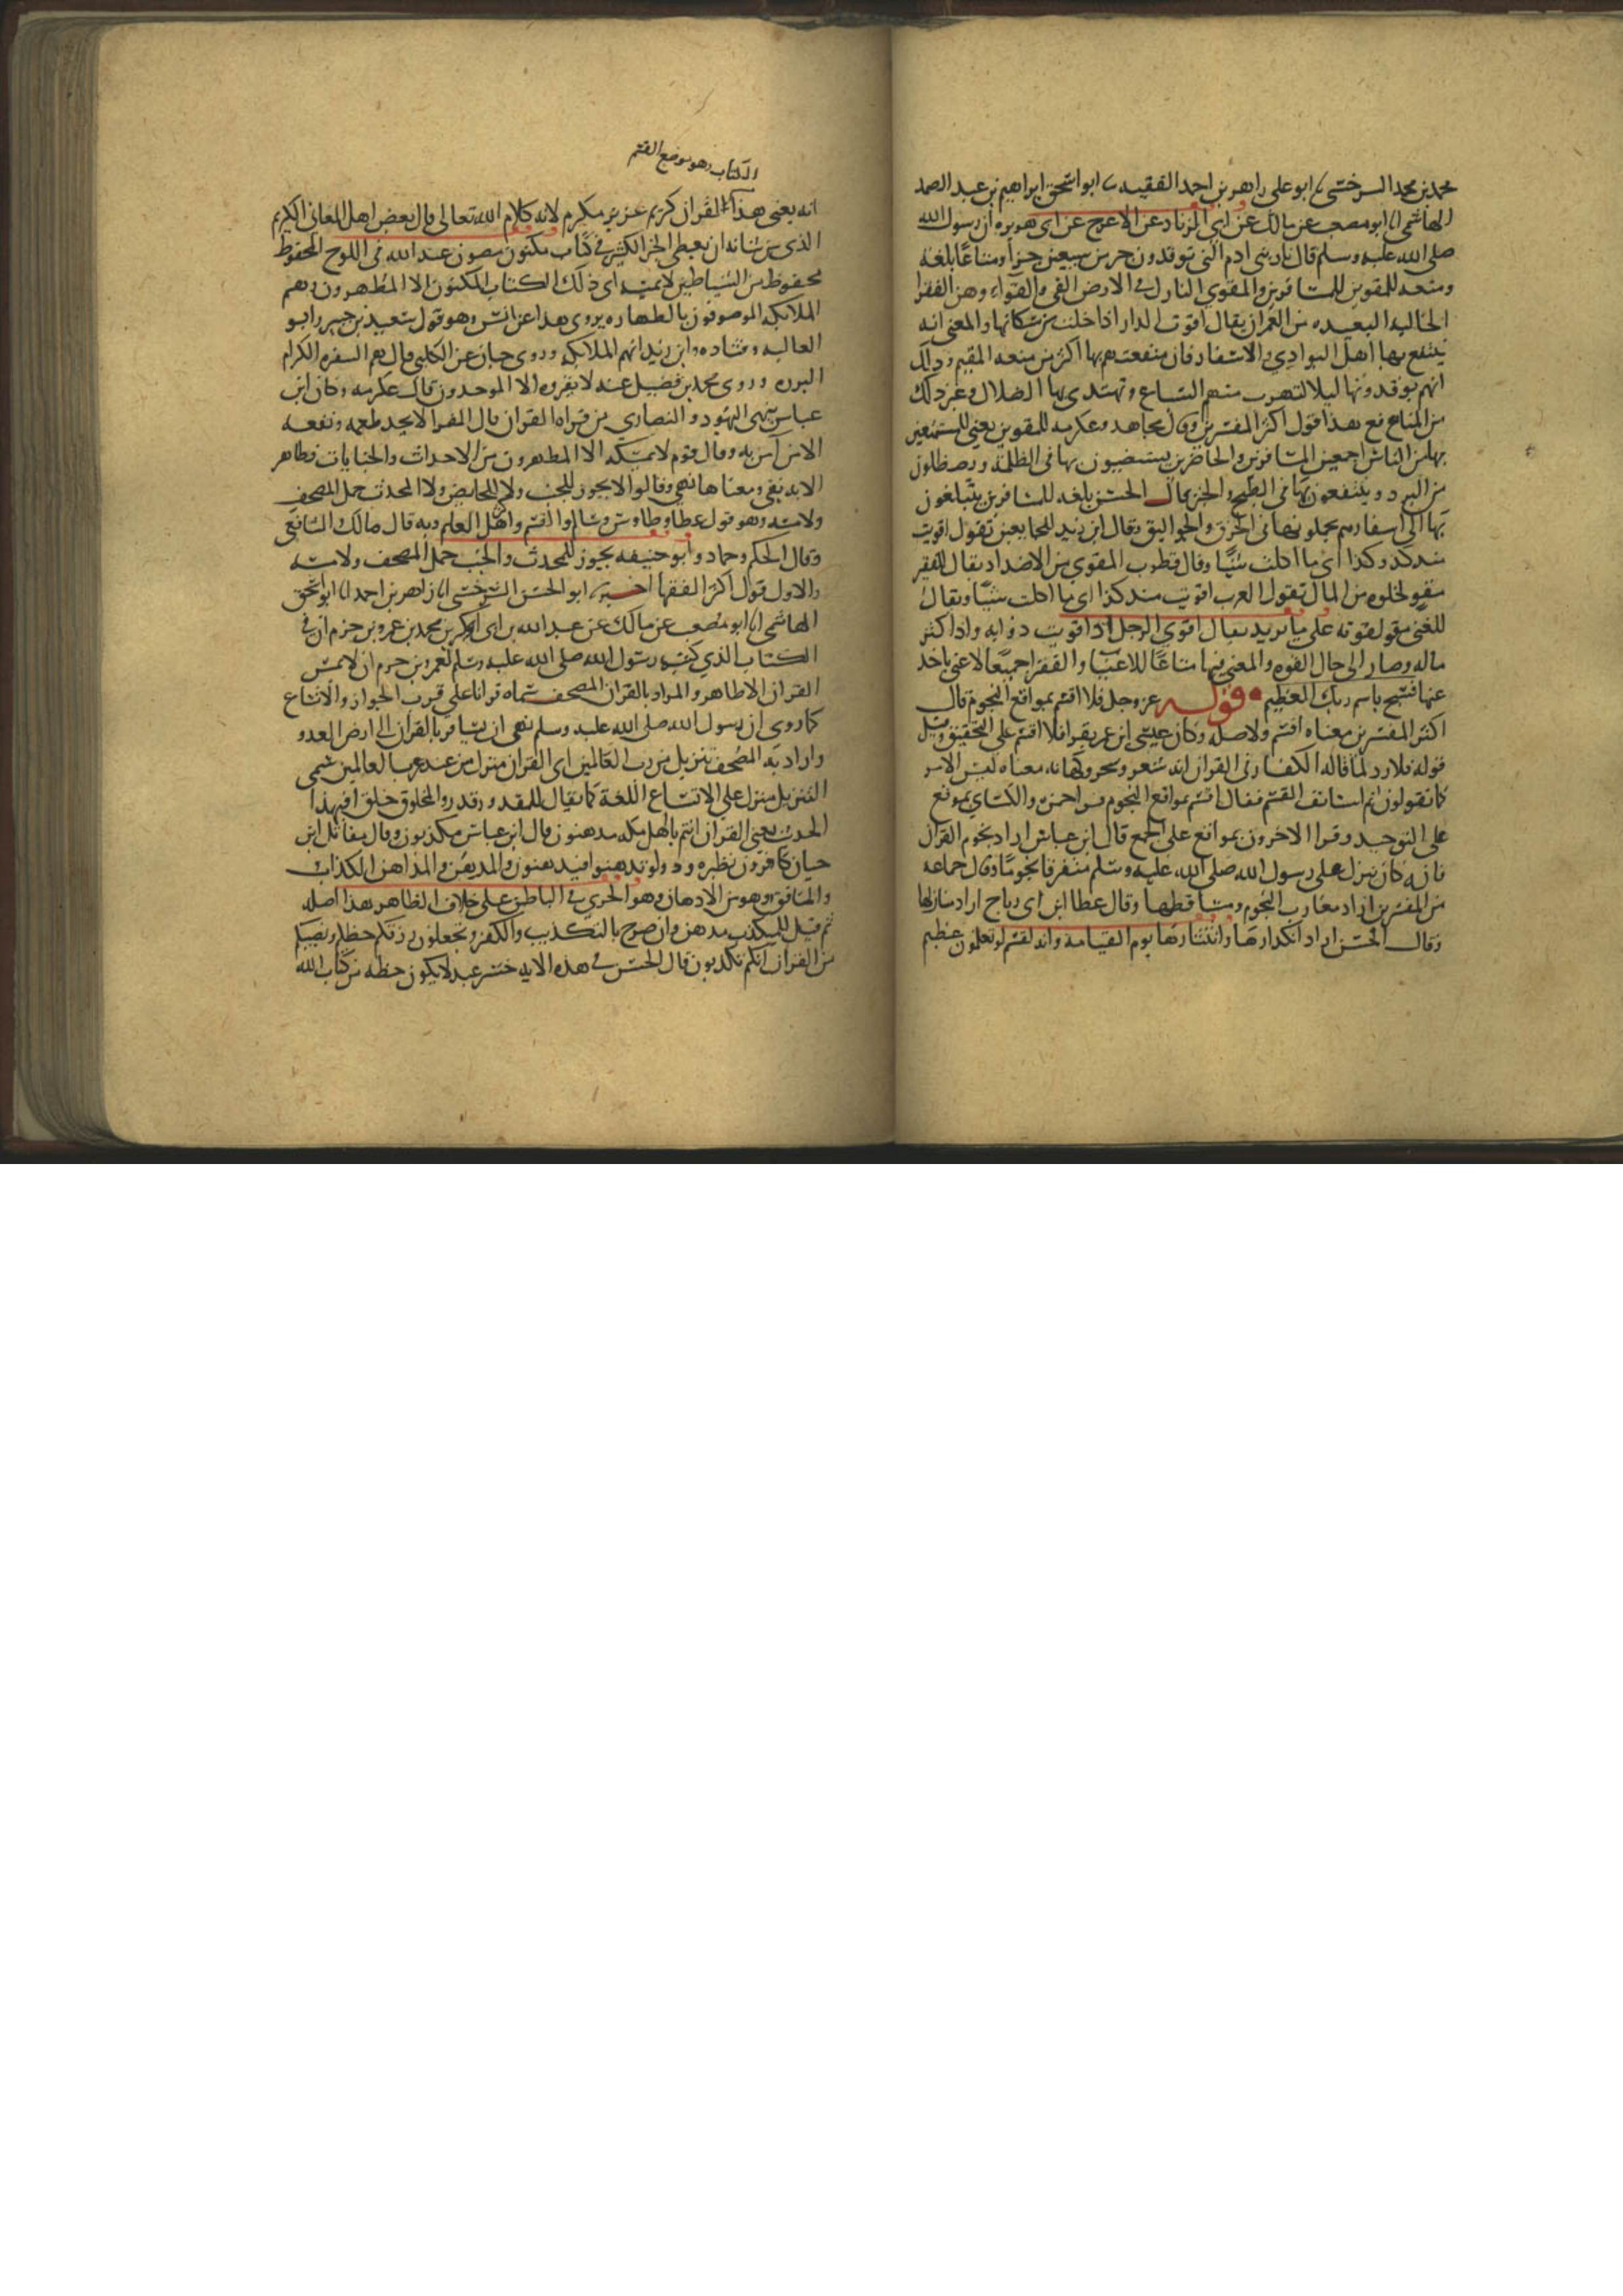 محمد بن محمد السرخسي ابو علي زاهر بن احمد الفقيه ابو اسحق ابراهيم بن عبد الصمد
الهاشمي انا ابو مصعب عن مالك عن ابي الزناد عن الاعرج عن ابي هريره ان رسول الله
صلى الله عليه وسلم قال نار بني ادم التي توقدون جز من سبعين جزأ ومتاعًا بلغة
ومنفعه للمقوين للمسافرين والمقوي النازل في الارض القي والقواء وهن القفرا
الخاليه البعيده من العمران يقال اقوت الدار اذا خلت من سكانها والمعنى انه
ينتفع بها اهل البوادي والاسفار فان منفعتهم بها اكثر من منفعه المقيم وذلك
انهم يوقدونها ليلا لتهرب منهم السباع وتهتدي بها الضلال وغير ذلك
من المنافع هذا قول اكثر المفسرين وقال مجاهد وعكرمه للمقوين يعني للمستمتعين
بها من الناس اجمعين المسافرين والحاضرين يستضيون بها في الظلمة ويصطلون
من البرد وينتفعون بها في الطبخ والخبز قال الحسن بلغه للمسافرين يتبلغون
بها الى اسفارهم يحملونها في الخرق والجواليق وقال ابن زيد للجايعين تقول اقويت
منذ كذا وكذا اي ما اكلت شيًا وقال قطرب المقوي من الاضداد يقال للفقير
مقو لخلوه من المال تقول العرب اقويت منذ كذا اي ما اكلت شيًا ويقال
للغني مقو لقوته على ما يريد يقال اقوي الرجل اذا قويت دوابه واذا كثر
ماله وصار الى حال القوه والمعنى فيها متاعًا للاغنيا والفقرا جميعًا لا غنى باحد
عنها فسبح باسم ربك العظيم قوله عز وجل فلا اقسم بمواقع النجوم قال
اكثر المفسرين معناه اقسم ولا صله وكان عيسى ابن عمر يقرا فلا اقسم على التحقيق وقيل
قوله فلا رد لما قاله الكفار في القران انه شعر وسحر وكهانه معناه ليس الامر
كما تقولون ثم استانف القسم فقال اقسم بمواقع النجوم قرا حمزه والكساي بموقع
على التوحيد وقرا الاخرون بمواقع على الجمع قال ابن عباس اراد نجوم القرآن
فانه كان ينزل على رسول الله صلى الله عليه وسلم متفرقا نجومًا وقال جماعه
من المفسرين اراد مغارب النجوم ومساقطها وقال عطا ابن ابي رباح اراد منازلها
وقال الحسن اراد انكدارها وانتثارها يوم القيامة وانه لقسم لو تعلمون عظيم
الكتاب وهو موضع القسم
انه يعني هذا القران كريم عزيز مكرم لانه كلام الله تعالى قال بعض اهل المعاني الكريم
الذي من شانه ان يعطي الخير الكثير في كتاب مكنون مصون عند الله في اللوح المحفوظ
محفوظ من الشياطين لا يمسه اي ذلك الكتاب المكنون الا المطهرون وهم
الملايكه الموصوفون بالطهاره يروى هذا عن انس وهو قول سعيد بن جبير وابو
العاليه وقتاده وابن زيد انهم الملايكه وروى حبان عن الكلبي قال هم السفره الكرام
البرره وروى محمد بن فضيل عنه لا يقروه الا الموحدون قال عكرمه وكان ابن
عباس ينهى اليهود والنصارى من قراه القران قال الفرا لا يجد طعمه ونفعه
الا من آمن به وقال قوم لا يمسه الا المطهرون من الاحداث والجنايات فظاهر
الايه نفي ومعناها نهي وقالوا لا يجوز للجنب ولا للحايض ولا المحدث حمل المصحف
ولا مسه وهو قول عطا وطاوس وسالم والقسم واهل العلم وبه قال مالك الشافعي
وقال الحكم وحماد وابو حنيفه يجوز للمحدث والجنب حمل المصحف ولا مسه
والاول قول اكثر الفقها اخبرنا ابو الحسن السرخسي انا زاهر بن احمد انا ابو اسحق
الهاشمي انا ابو مصعب عن مالك عن عبد الله بن ابي بكر بن محمد بن عمرو بن حزم ان في
الكتاب الذي كتب رسول الله صلى الله عليه وسلم لعمرو بن حزم ان لا يمس
القران الا طاهر والمراد بالقران المصحف سماه قرانا على قرب الجوار والاتساع
كما روي ان رسول الله صلى الله عليه وسلم نهى ان يسافر بالقران الى ارض العدو
واراد به المصحف تنزيل من رب العالمين اي القران منزل من عند رب العالمين سمي
التنزيل منزل علي الاتساع اللغة كما يقال للمقدور قدر والمخلوق خلق افبهذا
الحديث يعني القران انتم يا اهل مكه مدهنون قال ابن عباس مكذبون وقال مقاتل ابن
حيان كافرون نظيره ودوا لو تدهنوا فيدهنون والمدهن والمداهن الكذاب
والمنافق وهو من الادهان وهو الجري في الباطن على خلاف الظاهر هذا اصله
ثم قيل للمكذب مدهن وان صرح بالتكذيب والكفر وتجعلون رزقكم حظكم ونصيبكم
من القران انكم تكذبون قال الحسن في هذه الايه خسر عبد لا يكون حظه من كتاب الله